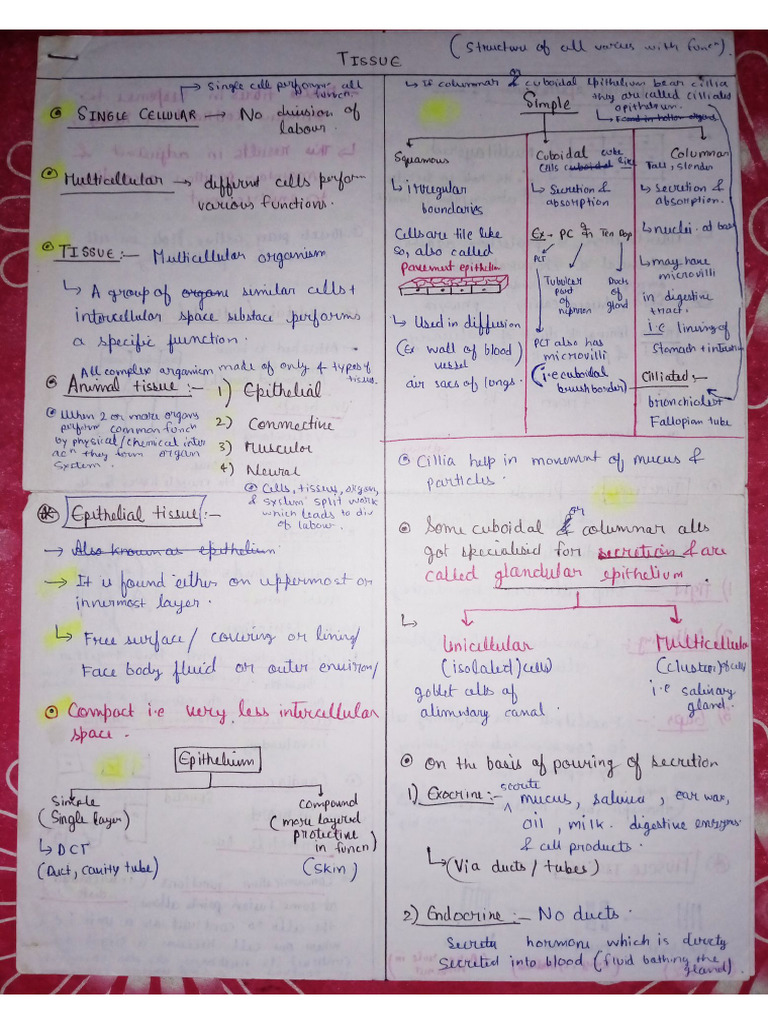 TISSUE
(Structure of cell varies with funcn).
↳ Single cell perform all funcn.
SINGLE CELLULAR → No division of labour.
Multicellular → different cells perform various functions.
TISSUE :- Multicellular organism
↳ A group of organs similar cells + intercellular space substace performs a specific function.
All complex organism made of only 4 types of tissue.
Animal tissue :-
1) Epithelial
2) Connective
3) Muscular
4) Neural
When 2 or more organs
perform common funcn
by physical/chemical inter
acn they form organ
system.
Cells, tissue, organ,
& system split work
which leads to div
of labour.
Epithelial tissue :-
→ Also known as epithelium.
→ It is found either on uppermost or
innermost layer.
↳ Free surface / covering or lining /
Face body fluid or outer environ/
Compact i.e very less intercellular
space.
Epithelium
Simple
(Single layer)
↳ DCT
(Duct, cavity tube)
Compound
(more layered
protective
in funcn)
(Skin)
↳ If columnar & cuboidal epithelium bear cillia
they are called cilliated
epithelium.
↳ Found in hollow organs
Simple
Squamous
↳ irregular
boundaries
Cells are tile like
so, also called
pavement epithelium
↳ Used in diffusion
(Ex wall of blood
vessel)
air sacs of lungs.
Cuboidal cube
cells cuboidal like
↳ Secretion &
absorption
Ex - PC in Ten Dop
PCT
Tubular
part
of
nephron
Ducts
of
gland
PCT also has
microvilli
(i.e cuboidal
brush border)
Columnar
Tall, slender
↳ secretion &
absorption.
↳ nuclei at base
↳ may have
microvilli
in digestive
tract.
i.e lining of
Stomach + intestine
Cilliated :-
bronchioles +
Fallopian tube
Cillia help in movement of mucus &
particles.
Some cuboidal & or columnar cells
got specialised for secretion & are
called glandular epithelium.
↳
Unicellular
(isolated) cells
goblet cells of
alimentary canal.
Multicellular
(cluster) of cells
i.e salivary
gland.
On the basis of pouring of secretion
1) Exocrine :- secrete mucus, saliva, ear wax,
oil, milk. digestive enzymes
& cell products.
↳ (Via ducts / tubes)
2) Endocrine :- No ducts.
Secrete hormone which is directly
secreted into blood (fluid bathing the
gland)